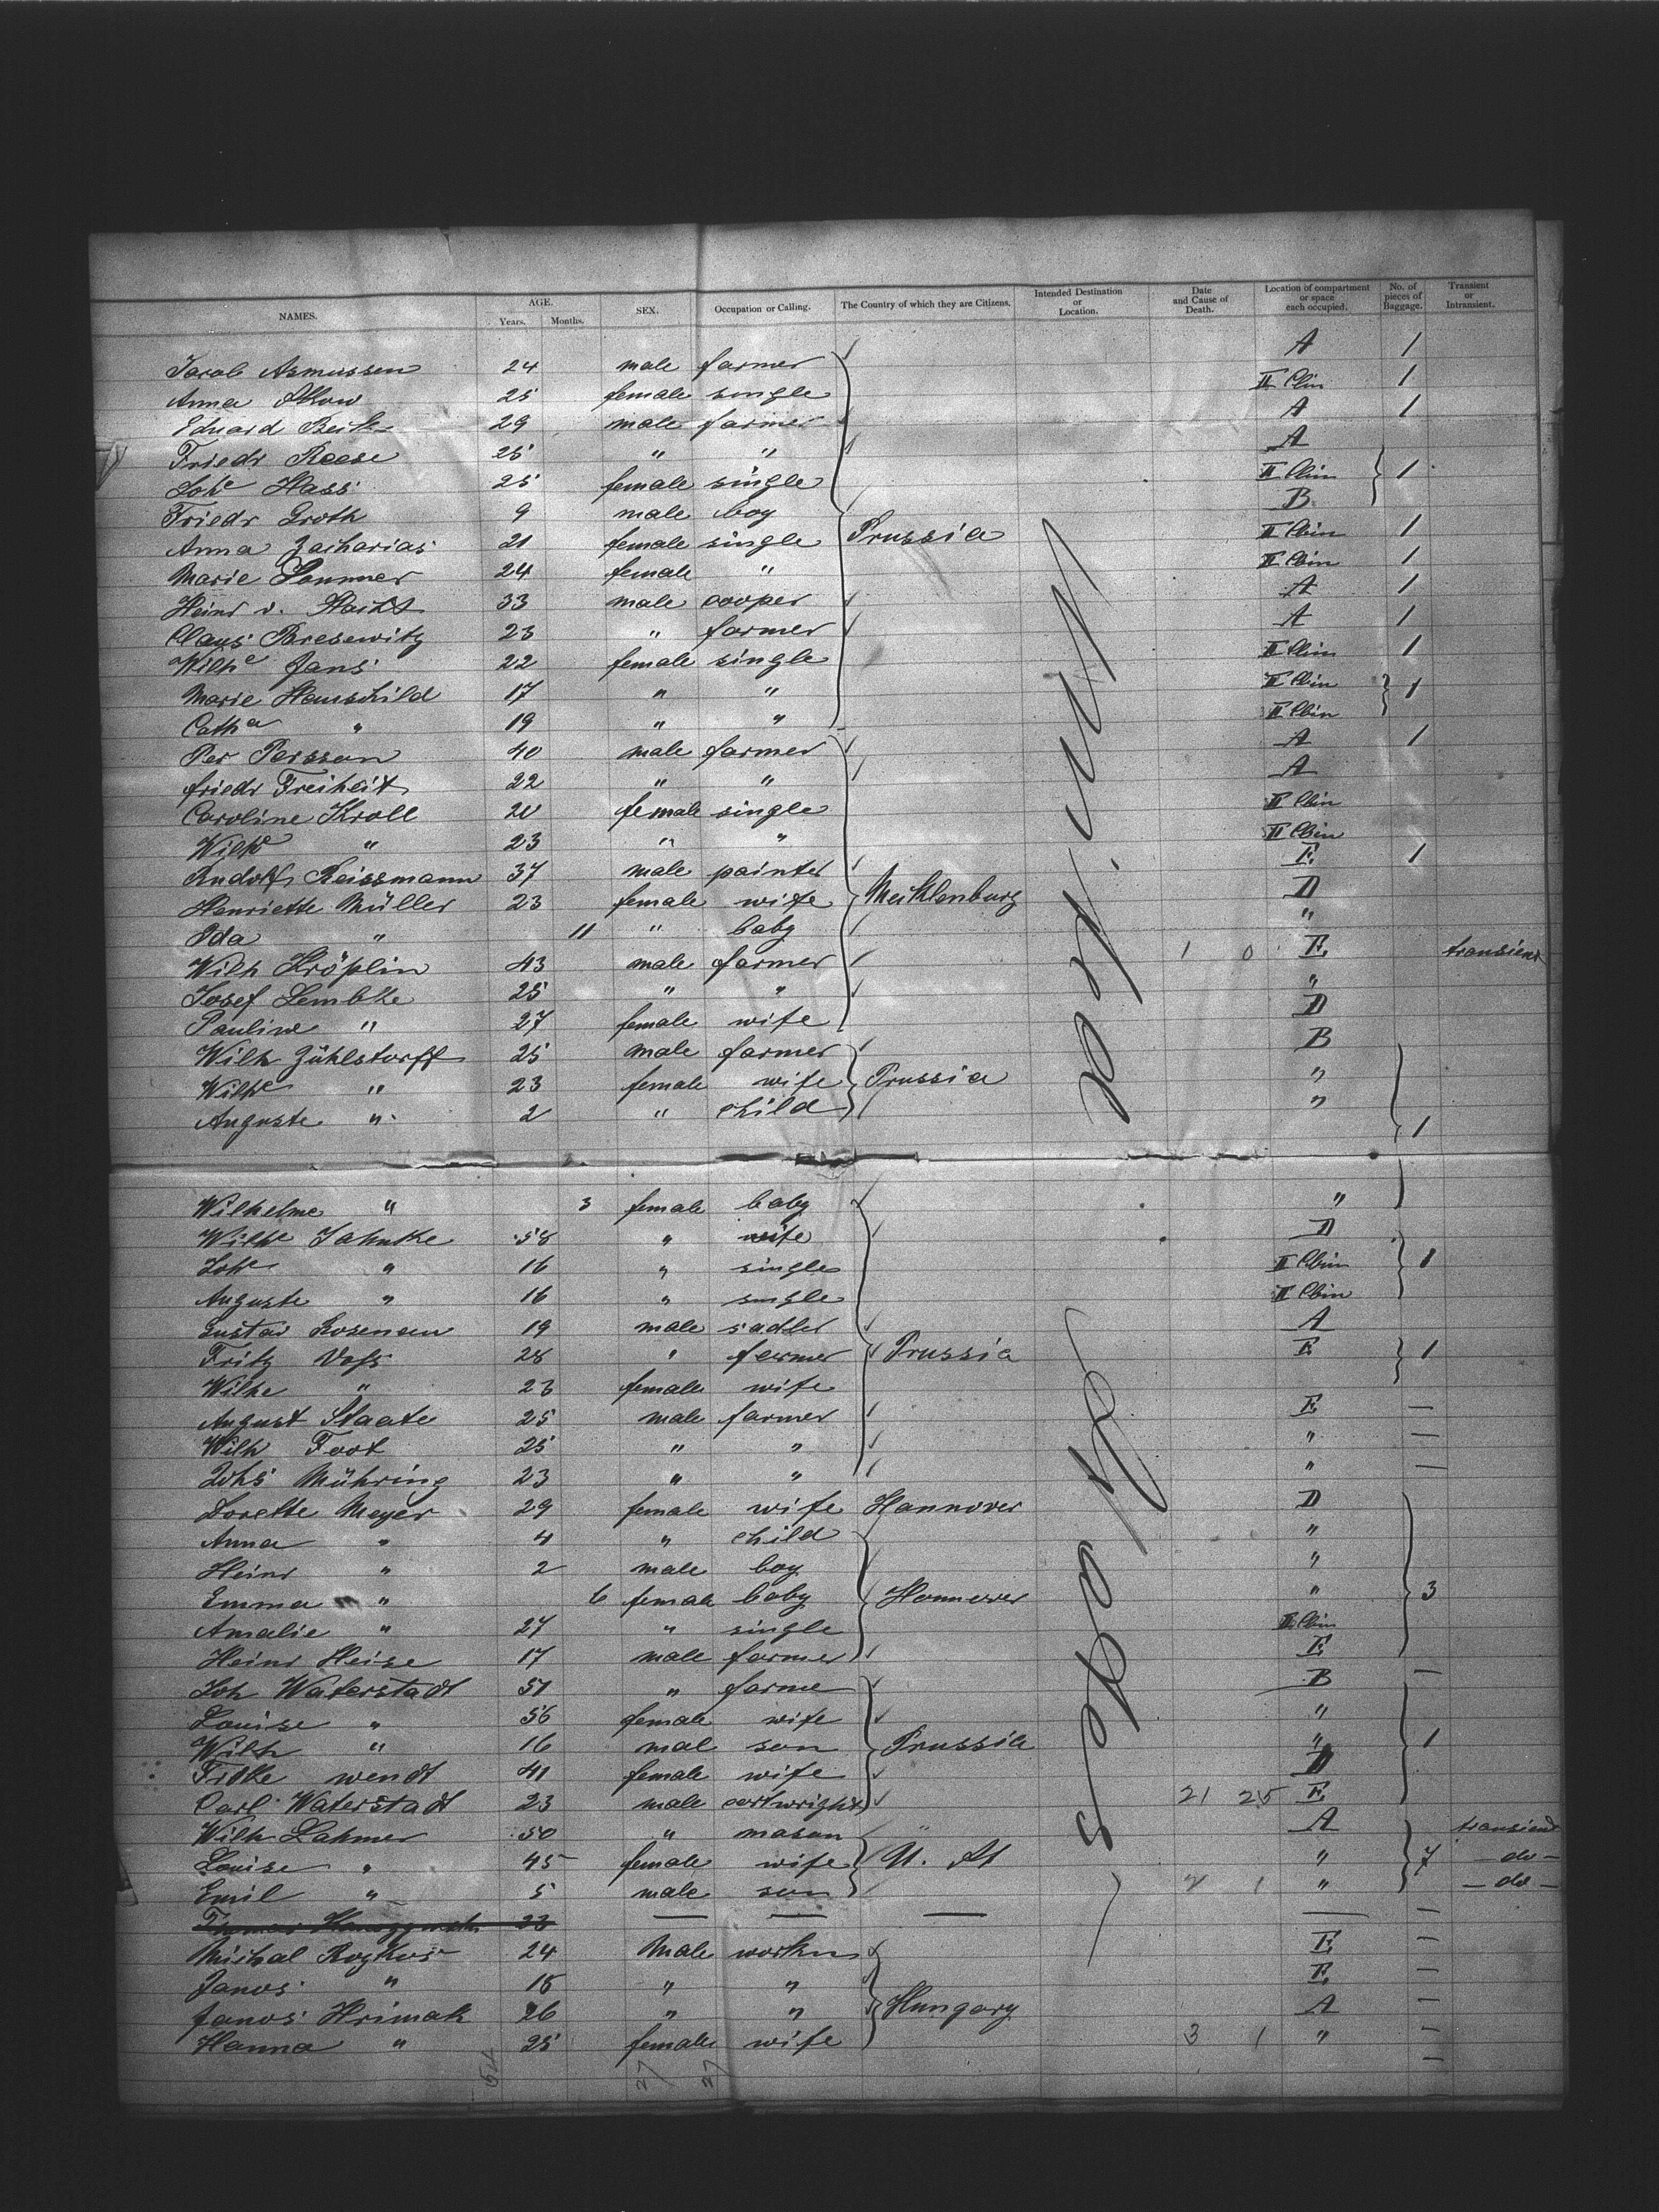 NAMES. AGE. Years. Months. SEX. Occupation or Calling. The Country of which they are Citizens. Intended Destination or Location. Date and Cause of Death. Location of compartment or space each occupied. No. of pieces of Baggage. Transient or Intransient.
Jacob Asmussen 24 male farmer A 1
Anna 25 female single II Cbin 1
Eduard 29 male farmer A 1
Friedr Reese 25 " " A
Johe Hass 25 female single II Cbin 1
Friedr Groth 9 male boy B
Anna Zacharias 21 female single Prussia II Cbin 1
Marie Sommer 24 female " II Cbin 1
Heinr v. 33 male cooper A 1
Claus Bresewitz 23 " farmer A 1
Wilhe Jans 22 female single II Cbin 1
Marie Hauschild 17 " " II Cbin 1
Catha " 19 " " II Cbin
Per Persson 40 male farmer A 1
Friedr Freiheit 22 " " A
Caroline Kroll 20 female single II Cbin
Wilhe " 23 " " II Cbin
Rudolf Reissmann 37 male painter E 1
Henriette Müller 23 female wife Mecklenburg D
Ida " 11 " baby "
Wilh Kröplin 43 male farmer 1 0 E transient
Josef Lembke 25 " " "
Pauline " 27 female wife D
Wilh Zühlstorff 25 male farmer B
Wilhe " 23 female wife Prussia "
Auguste " 2 " child " 1
Wilhelme " 3 female baby "
Wilhe Jahnke 58 " wife D
Johe " 16 " single II Cbin 1
Auguste " 16 " single II Cbin
Gustav Rosenau 19 male sadler A
Fritz Voss 28 " farmer Prussia E 1
Wilhe " 23 female wife
August Staate 25 male farmer E —
Wilh Foot 25 " " " —
Johs Mühring 23 " " " —
Dorette Meyer 29 female wife Hannover D
Anna " 4 " child "
Heinr " 2 male boy "
Emma " 6 female baby Hannover " 3
Amalie " 27 " single II Cbin
Heinr Heise 17 male farmer E
Joh Waterstadt 51 " farme B —
Louise " 56 female wife "
Wilh " 16 mal son Prussia " 1
Fridke wendt 41 female wife D
Carl Waterstadt 23 male cartwright 21 25 E
Wilh Lahmer 50 " mason A transient
Louise " 45 female wife U. St " 7 — do —
Emil " 5 male son 2 1 " — do —
23 — — — — —
Michal 24 Male workm E —
Janos " 18 " " E —
Janos Hrimak 26 " " Hungary A —
Hanna " 25 female wife 3 1 " —
54 27 27